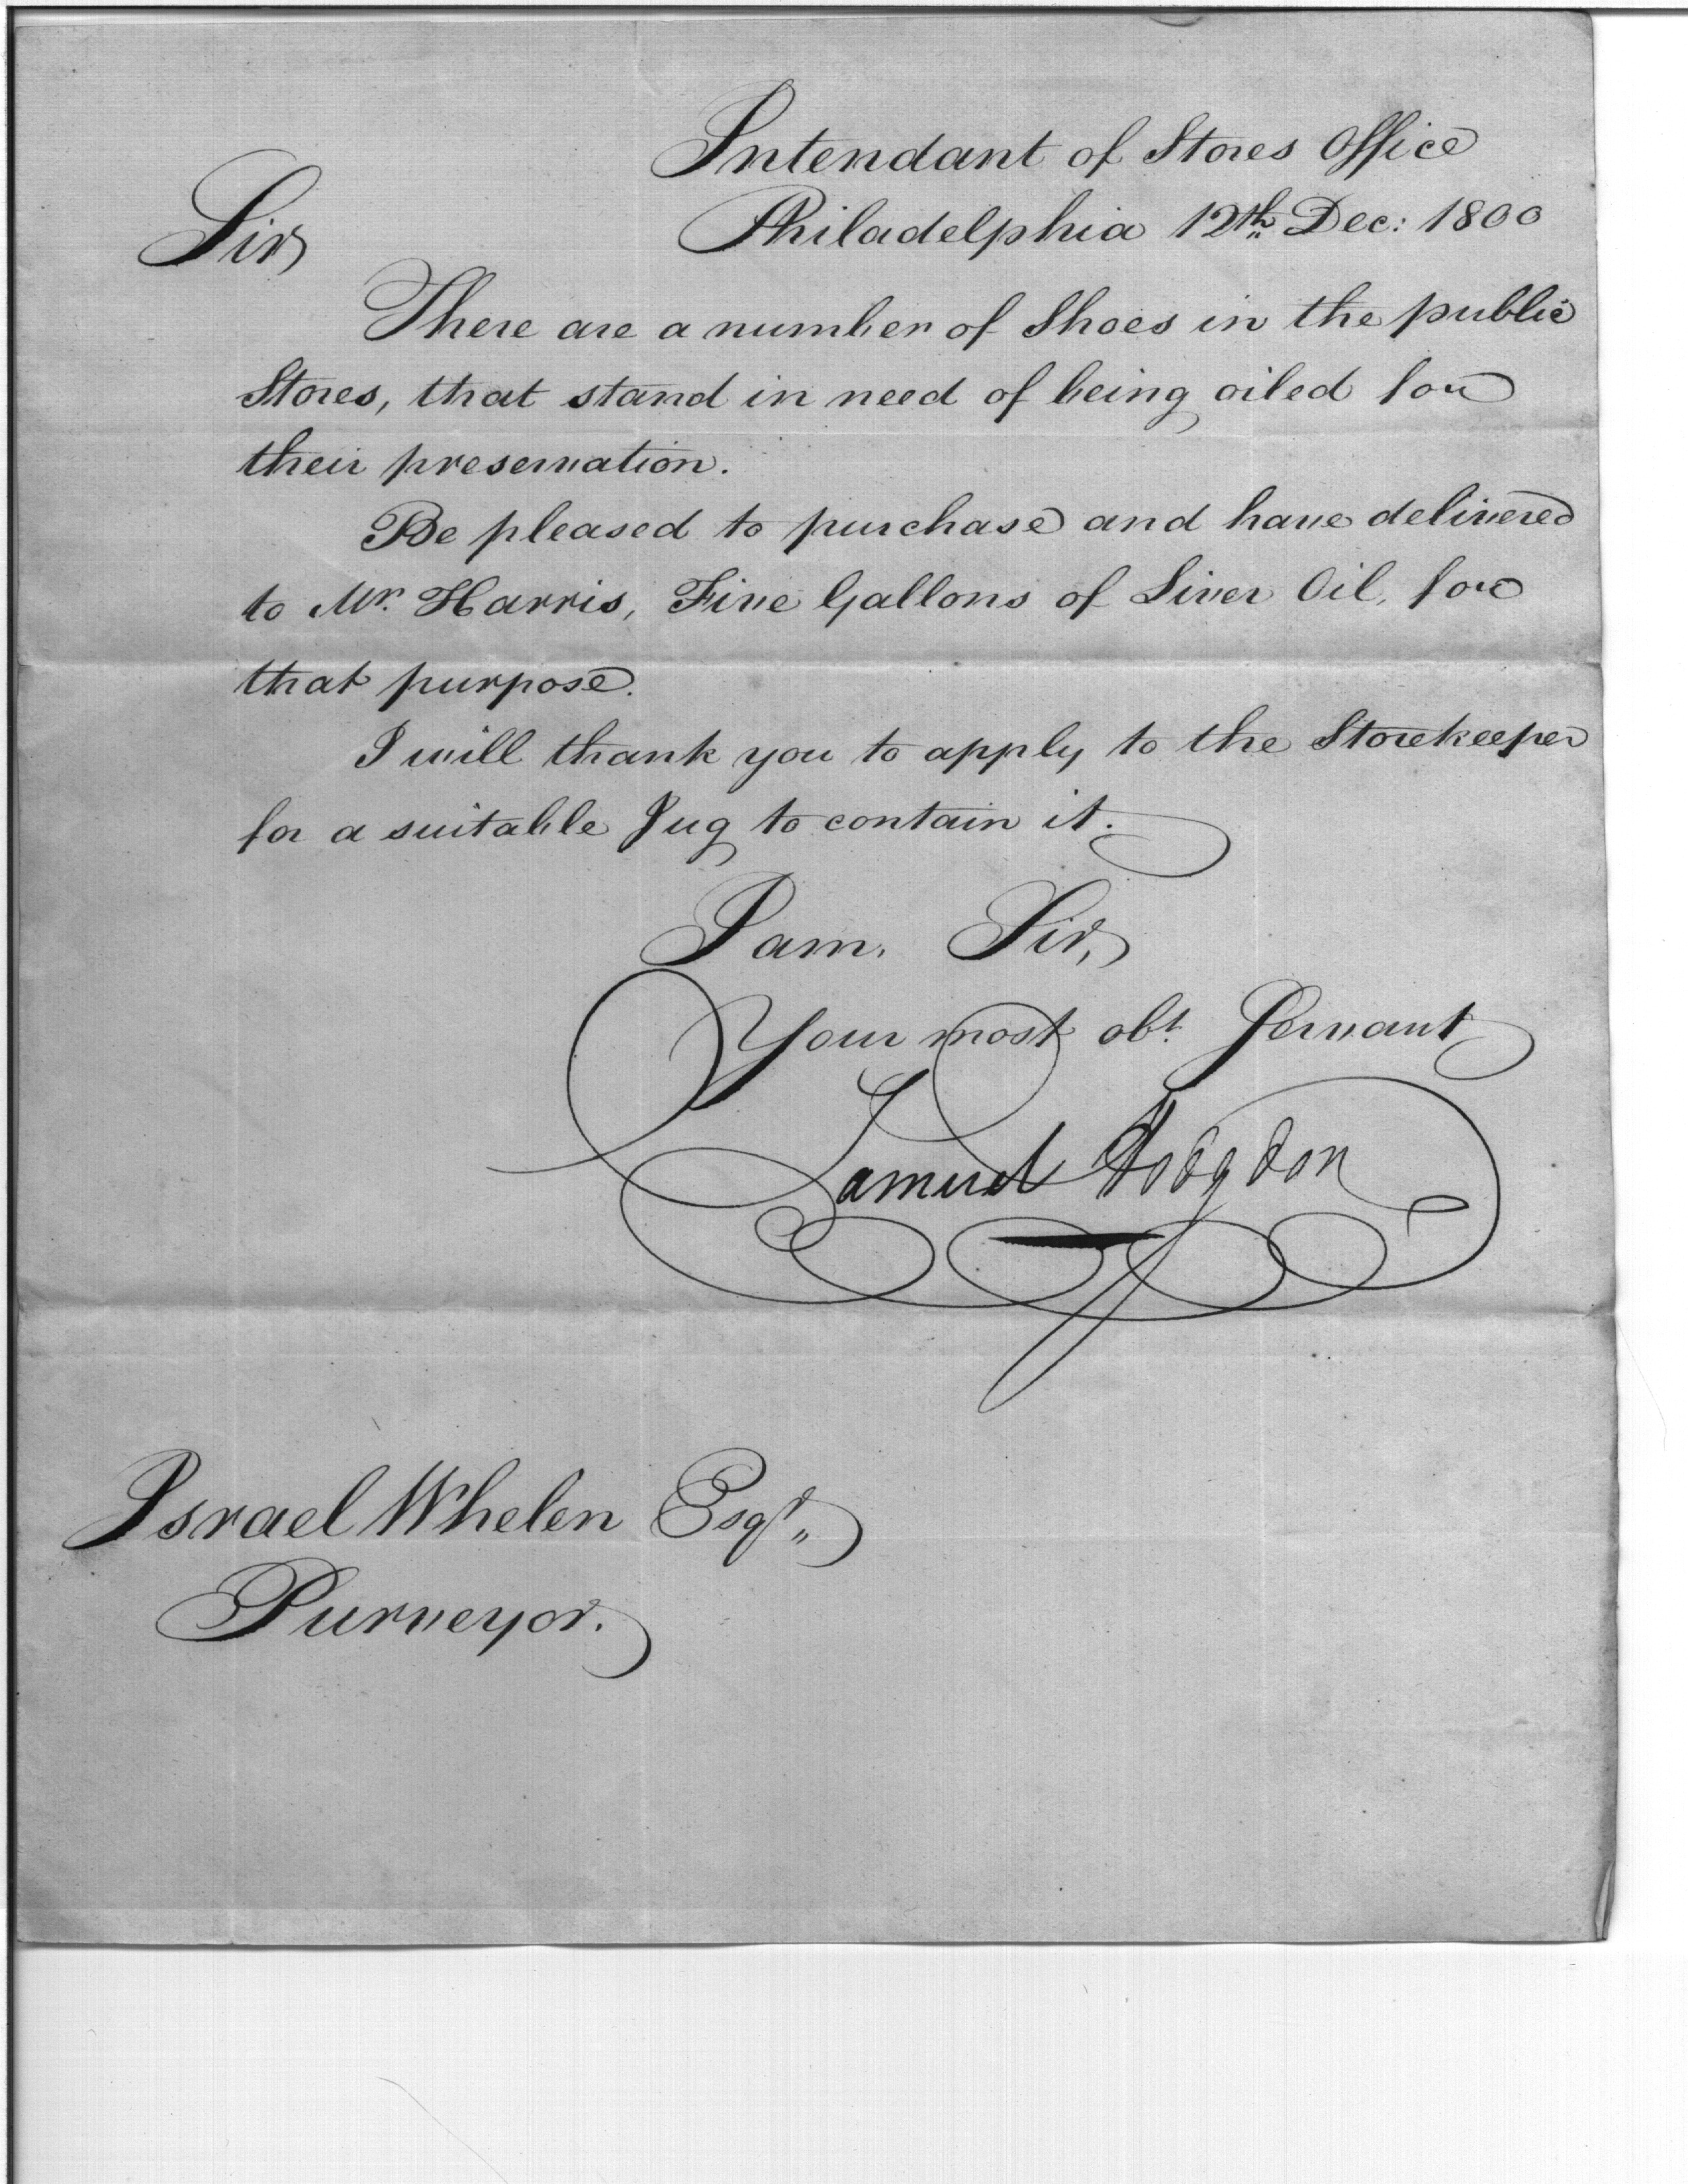 Intendant of Stores Office
Philadelphia 12th Dec: 1800
Sir
There are a number of Shoes in the public
Stores, that stand in need of being oiled for
their preservation.
Be pleased to purchase and have delivered
to Mr. Harris, Five Gallons of Liver Oil, for
that purpose.
I will thank you to apply to the Storekeeper
for a suitable Jug to contain it.
I am, Sir,
Your most obt. Servant
Samuel Hodgdon
Israel Whelen Esqr.
Purveyor.